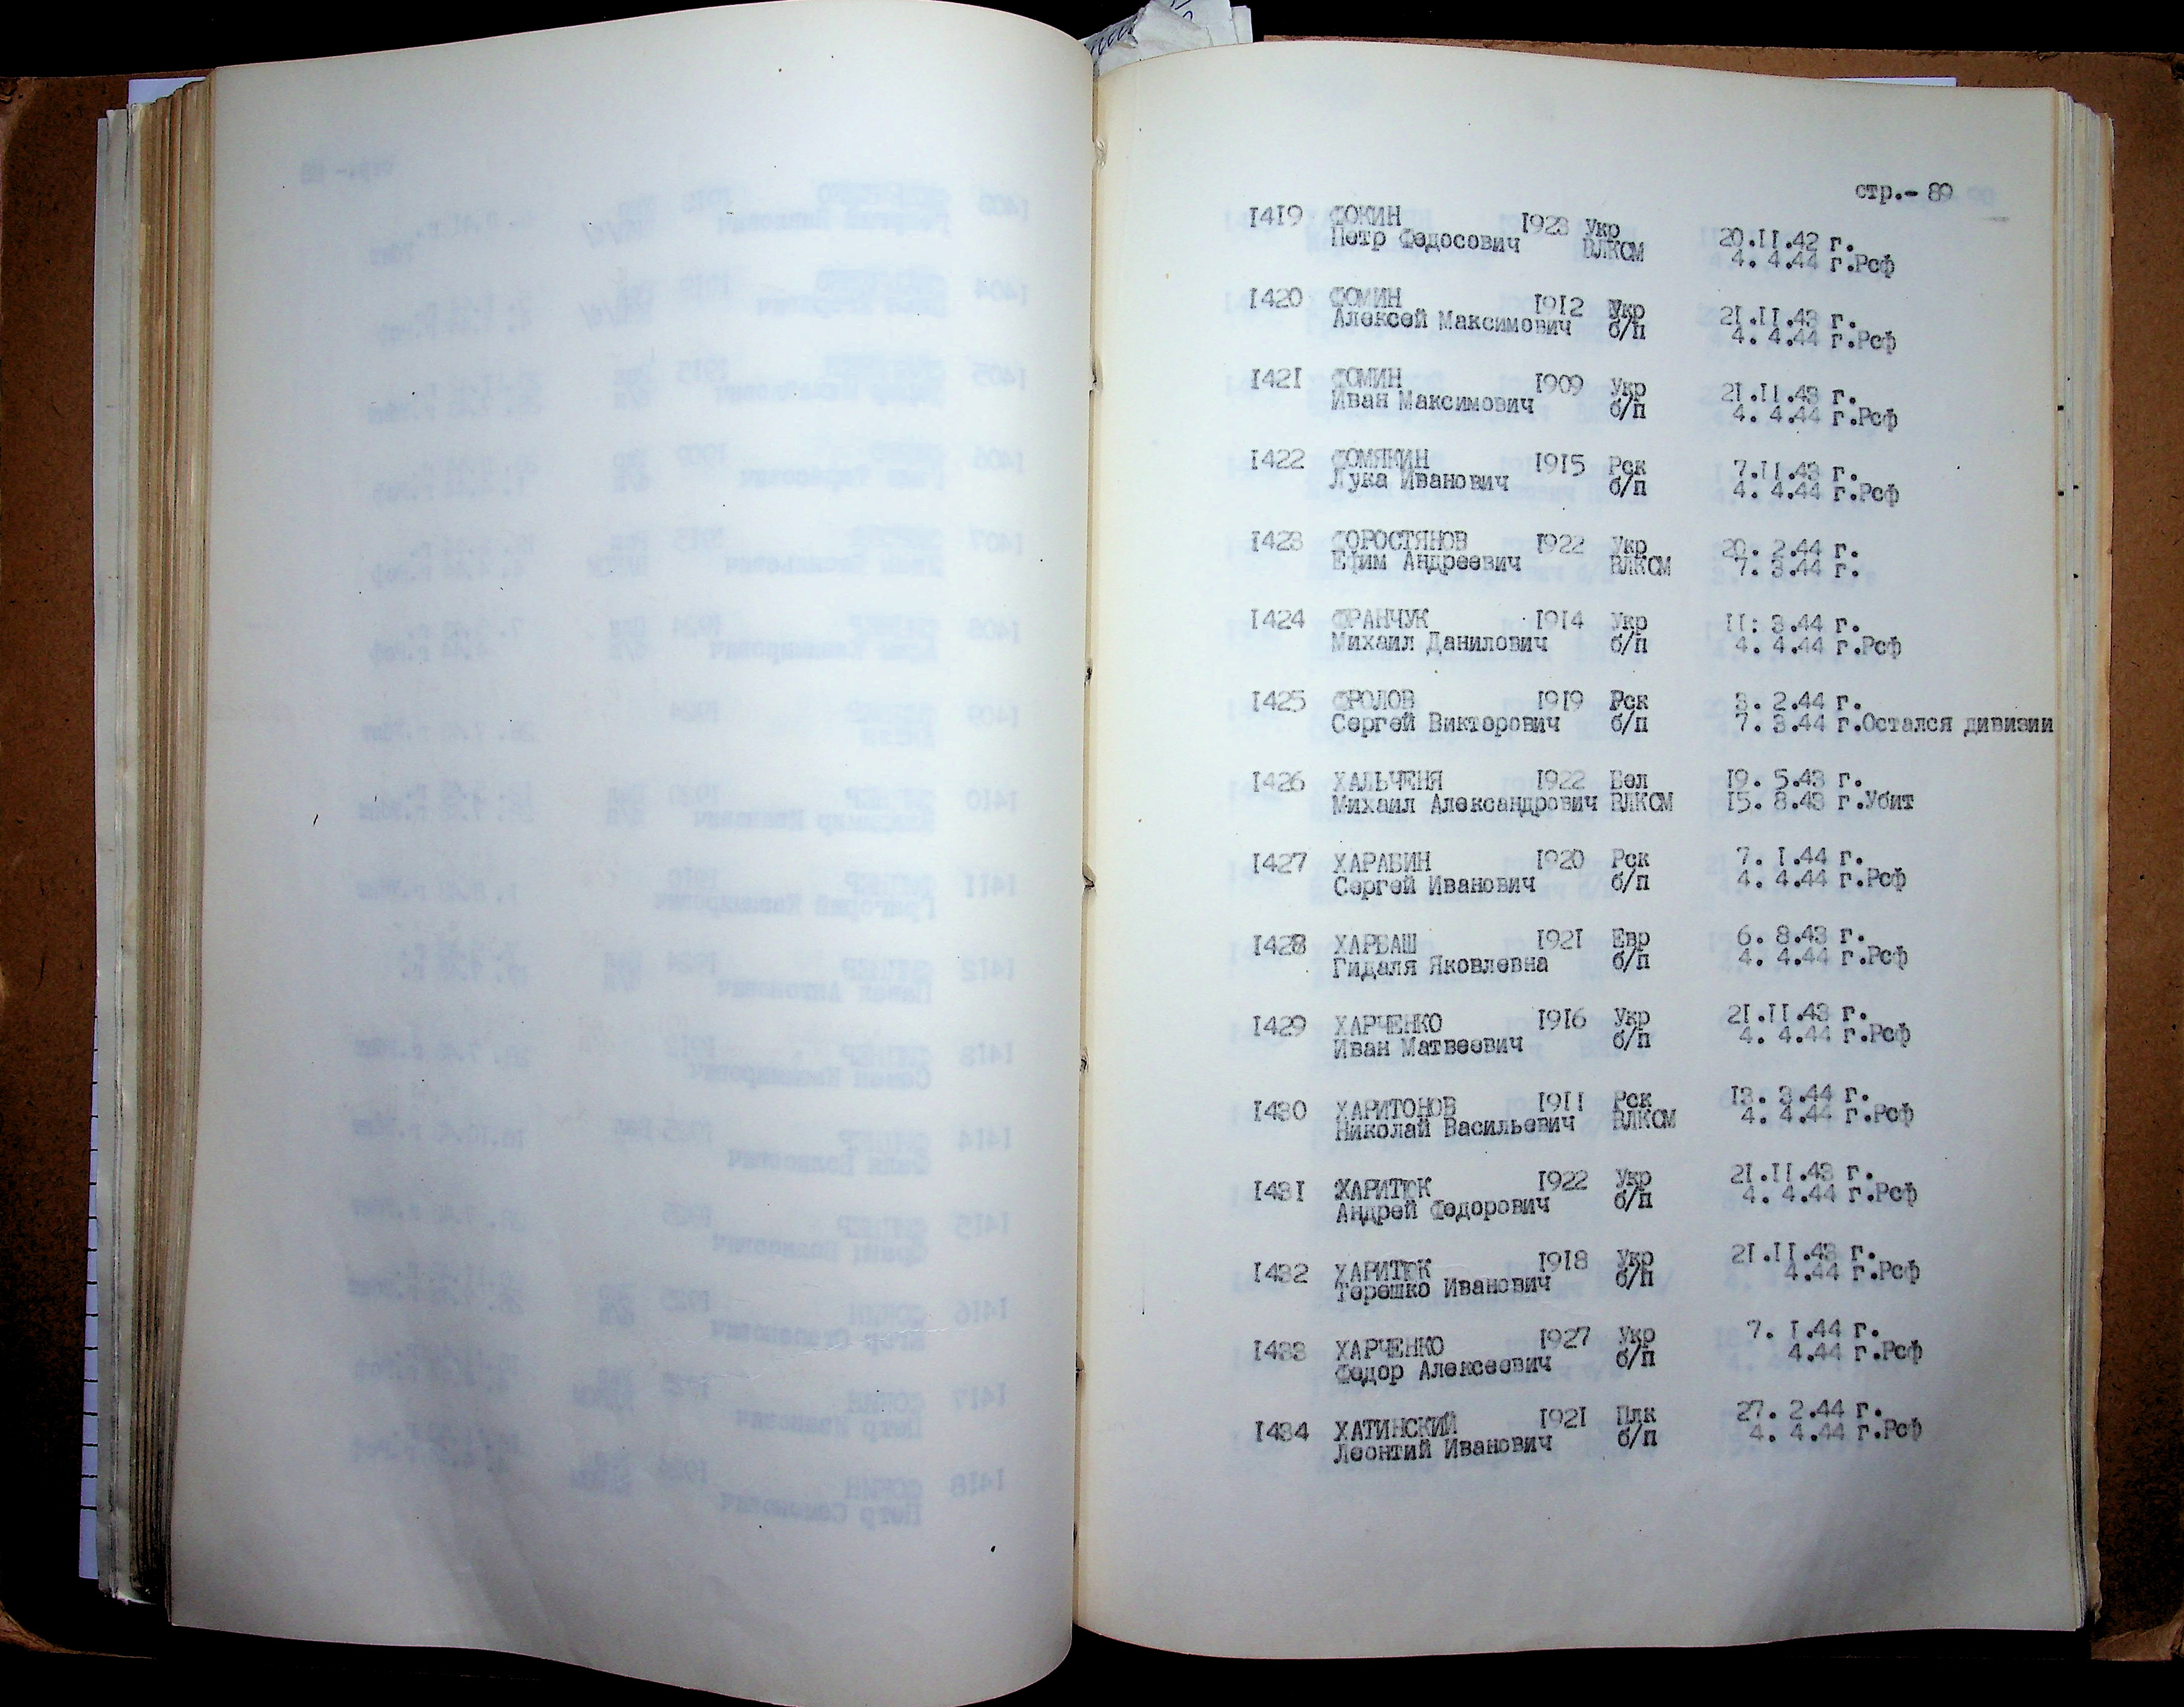 стр.- 89
I4I9 ФОКИН I923 Укр 20.II.42 г.
Петр Федосович ВЛКСМ 4. 4.44 г.Рсф
I420 ФОМИН I9I2 Укр 2I.II.43 г.
Алексей Максимович б/п 4. 4.44 г.Рсф
I42I ФОМИН I909 Укр 2I.II.43 г.
Иван Максимович б/п 4. 4.44 г.Рсф
I422 ФОМЯКИН I9I5 Рск 7.II.43 г.
Лука Иванович б/п 4. 4.44 г.Рсф
I423 ФОРОСТЯНОВ I922 Укр 20. 2.44 г.
Ефим Андреевич ВЛКСМ 7. 3.44 г.
I424 ФРАНЧУК I9I4 Укр II: 3.44 г.
Михаил Данилович б/п 4. 4.44 г.Рсф
I425 ФРОЛОВ I9I9 Рск 3. 2.44 г.
Сергей Викторович б/п 7. 3.44 г.Остался дивизии
I426 ХАЛЬЧЕНЯ I922 Бел I9. 5.43 г.
Михаил Александрович ВЛКСМ I5. 8.43 г.Убит
I427 ХАРАБИН I920 Рск 7. I.44 г.
Сергей Иванович б/п 4. 4.44 г.Рсф
I428 ХАРБАШ I92I Евр 6. 8.43 г.
Гидаля Яковлевна б/п 4. 4.44 г.Рсф
I429 ХАРЧЕНКО I9I6 Укр 2I.II.43 г.
Иван Матвеевич б/п 4. 4.44 г.Рсф
I430 ХАРИТОНОВ I9II Рск I3. 3.44 г.
Николай Васильевич ВЛКСМ 4. 4.44 г.Рсф
I43I ХАРИТЮК I922 Укр 2I.II.43 г.
Андрей Федорович б/п 4. 4.44 г.Рсф
I432 ХАРИТЮК I9I8 Укр 2I.II.43 г.
Терешко Иванович б/п 4.44 г.Рсф
I433 ХАРЧЕНКО I927 Укр 7. I.44 г.
Федор Алексеевич б/п 4.44 г.Рсф
I434 ХАТИНСКИЙ I92I Плк 27. 2.44 г.
Леонтий Иванович б/п 4. 4.44 г.Рсф